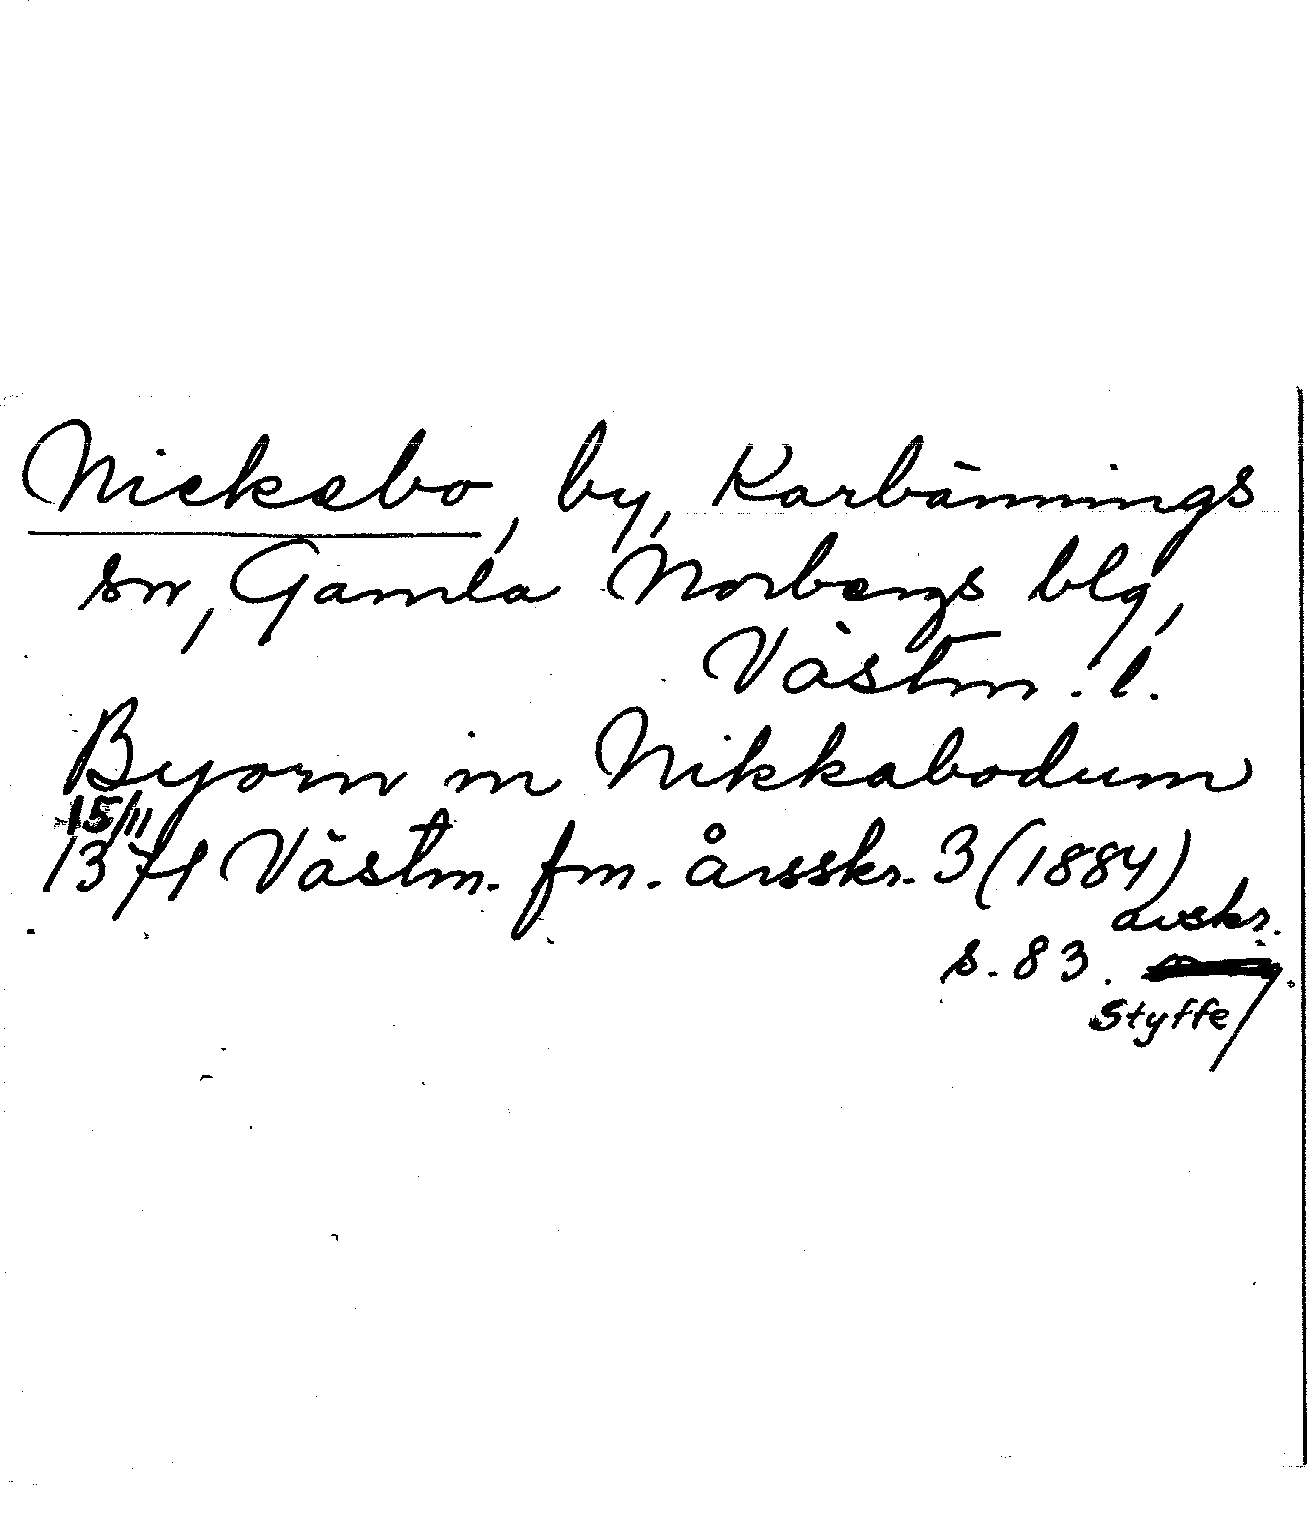 Nickebo, by, Karbännings
sn, Gamla Norbergs blg,
Västm. l.
Byorn in Nikkabodum
15/11
1371 Västm. fm. årsskr. 3 (1884)
avskr.
s. 83.
Styffe